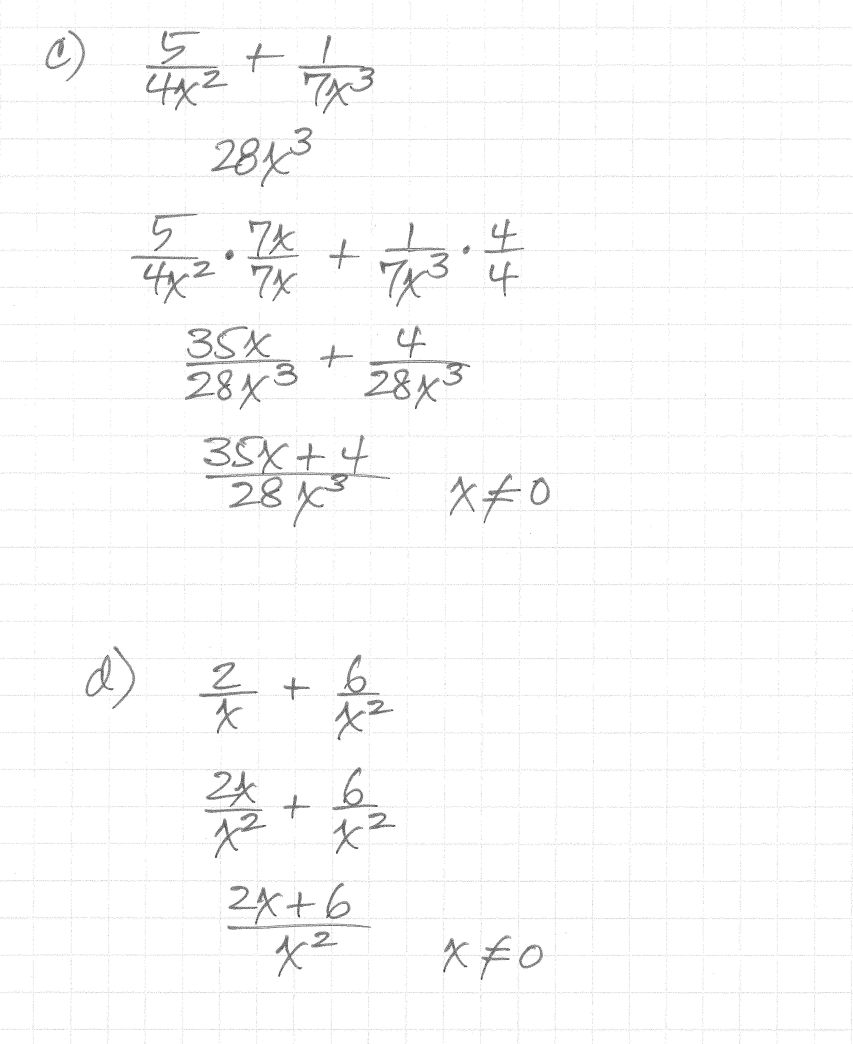 c) 5/4x² + 1/7x³
28x³
5/4x² · 7x/7x + 1/7x³ · 4/4
35x/28x³ + 4/28x³
(35x + 4)/28x³ x ≠ 0
d) 2/x + 6/x²
2x/x² + 6/x²
(2x + 6)/x² x ≠ 0